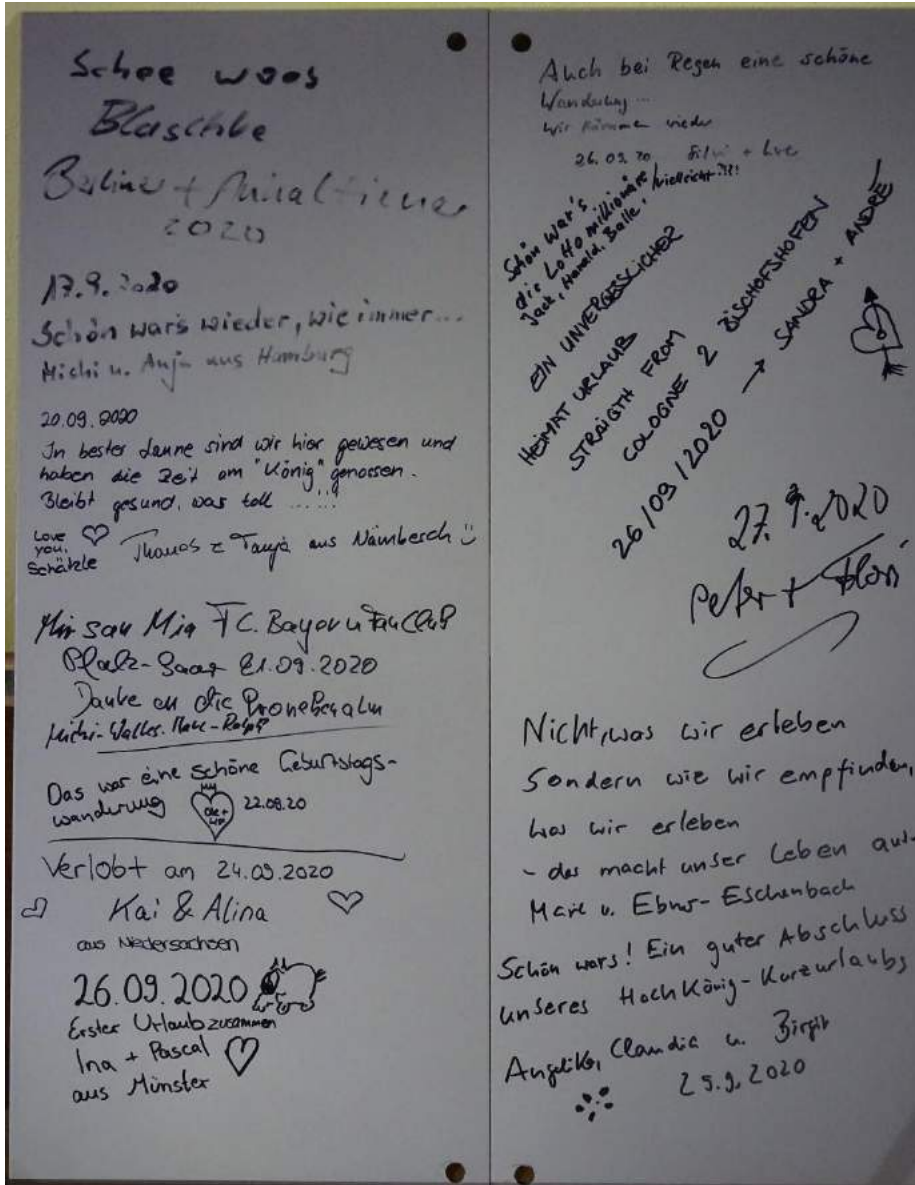 Schee woos
Blaschke
Berliner +
2020
17.9.2020
Schön wars wieder, wie immer...
Michi u. Anja aus Hamburg
20.09.2020
In bester Laune sind wir hier gewesen und
haben die Zeit am "König" genossen.
Bleibt gesund, was toll ......!
Love you, Schätzle
Thomas & Tanja aus Nämbersch
Mir san Mia FC. Bayern FanClub
Pfalz-Saar 21.09.2020
Danke an die Pronebenalm
Michi-Walter-
Das war eine schöne Geburtstags-
wanderung 22.09.20
Verlobt am 24.09.2020
Kai & Alina
aus Niedersachsen
26.09.2020
Erster Urlaub zusammen
Ina + Pascal
aus Münster
Auch bei Regen eine schöne
Wanderung...
Wir kommen wieder
26.09.20 Silvi +
Schön war's,
die Lotto millionäre vielleicht?!!!
Jack, Harald, Balle!
EIN UNVERGESSLICHER
HEIMAT URLAUB
STRAIGTH FROM
COLOGNE 2 BISCHOFSHOFEN
26/09/2020 → SANDRA + ANDRE
27.9.2020
Peter + Flori
Nicht, was wir erleben
Sondern wie wir empfinden,
was wir erleben
- das macht unser Leben aus.
Marie v. Ebner-Eschenbach
Schön wars! Ein guter Abschluss
unseres Hochkönig-Kurzurlaubs
Angelika, Claudia u. Birgit
25.9.2020